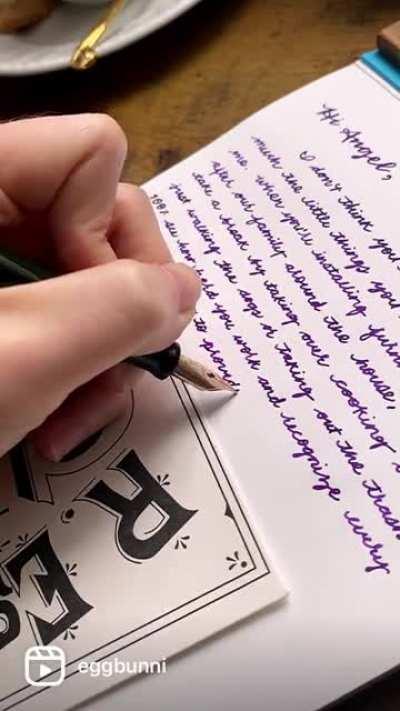 Hi Angel,
I don't think you
much the little things you
me. When you're installing furni
after our family around the house,
take a break by taking over cooking
that walking the dogs or taking out the trash
100%. See how hard you work and recognize every
to
R
E
eggbunni